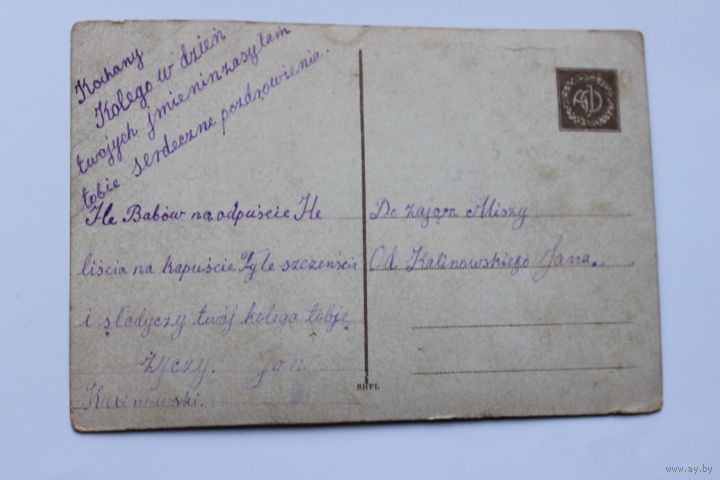 Kochany
Kolego w dzień
twojych Jmieninzasyłam
tobie serdeczne pozdrowienia.
Jle Babów na odpuście Jle
liścia na kapuście Tyle szczenścia
i słodyczy twój kolega tobje
życzy. Jon
Kalinowski.
Do zająm Miszy
Od Kalinowskiego Jana.
SHFL
www.ay.by